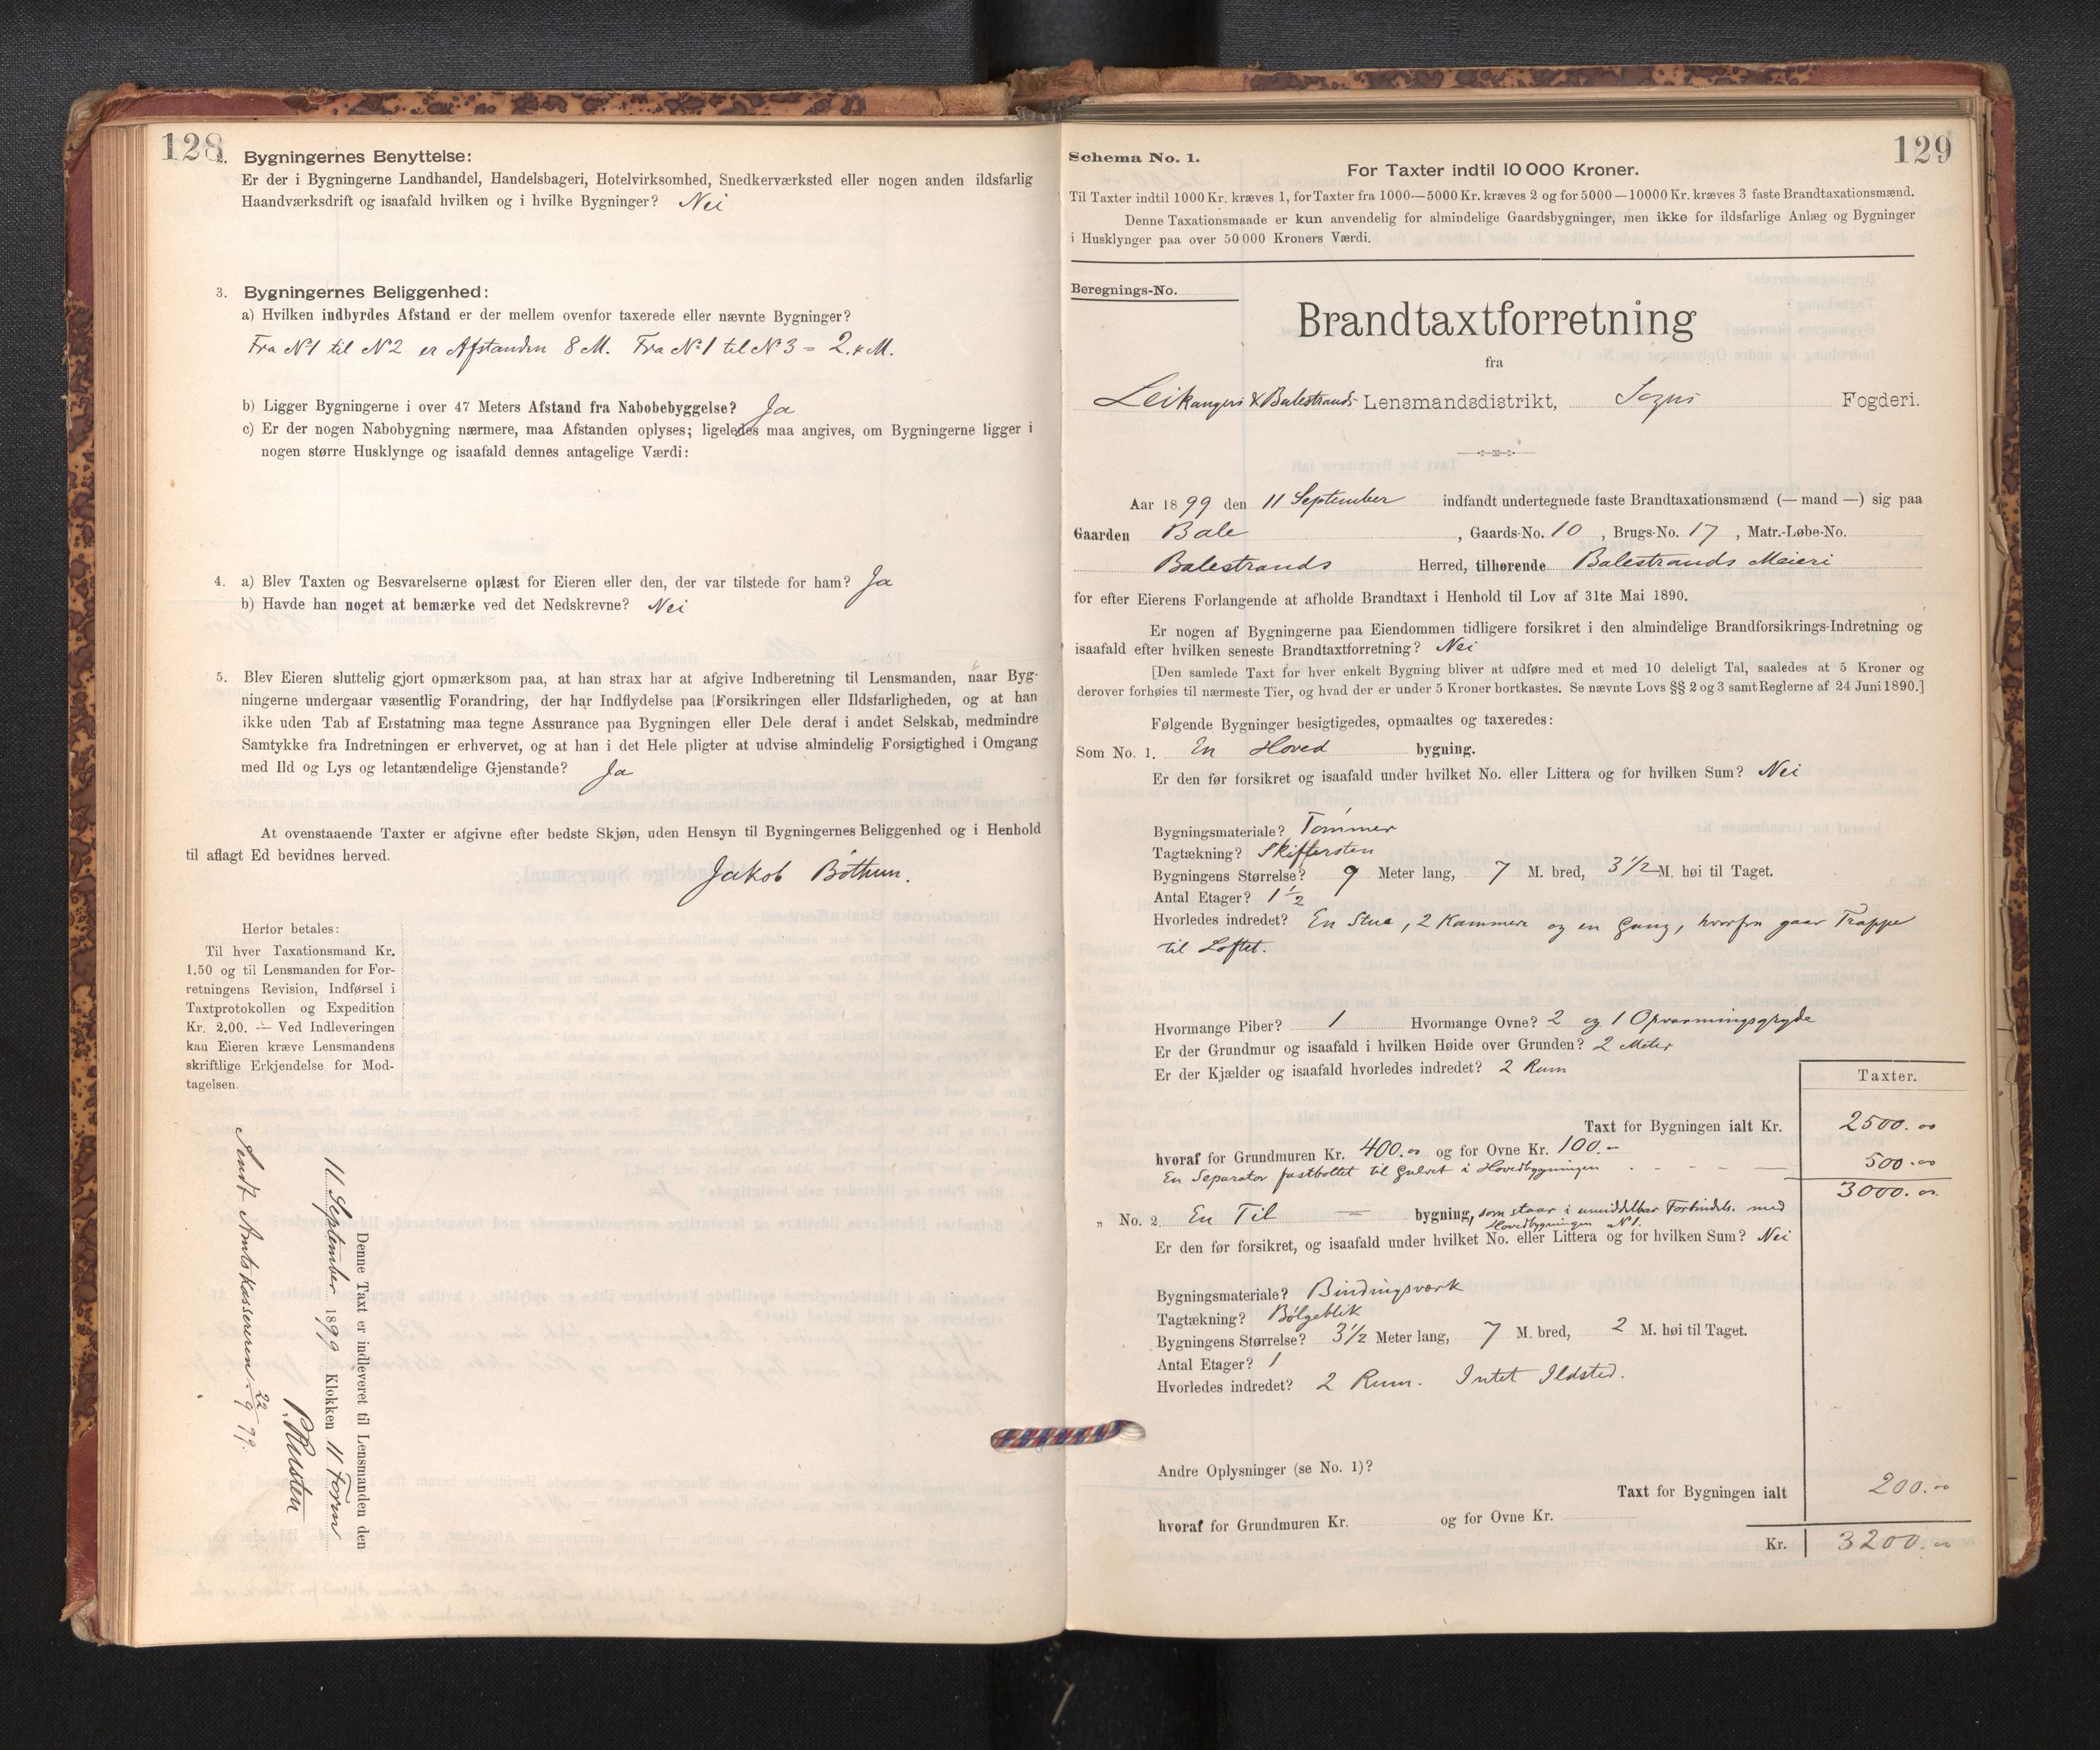 128
2. Bygningernes Benyttelse:
Er der i Bygningerne Landhandel, Handelsbageri, Hotelvirksomhed, Snedkerværksted eller nogen anden ildsfarlig
Haandværksdrift og isaafald hvilken og i hvilke Bygninger? Nei
3. Bygningernes Beliggenhed:
a) Hvilken indbyrdes Afstand er der mellem ovenfor taxerede eller nævnte Bygninger?
Fra No 1 til No 2 er Afstanden 8 M. Fra No 1 til No 3 = 2 M.
b) Ligger Bygningerne i over 47 Meters Afstand fra Nabobebyggelse? Ja
c) Er der nogen Nabobygning nærmere, maa Afstanden oplyses; ligeledes maa angives, om Bygningerne ligger i
nogen større Husklynge og isaafald dennes antagelige Værdi:
4. a) Blev Taxten og Besvarelserne oplæst for Eieren eller den, der var tilstede for ham? Ja
b) Havde han noget at bemærke ved det Nedskrevne? Nei
5. Blev Eieren sluttelig gjort opmærksom paa, at han strax har at afgive Indberetning til Lensmanden, naar Byg-
ningerne undergaar væsentlig Forandring, der har Indflydelse paa Forsikringen eller Ildsfarligheden, og at han
ikke uden Tab af Erstatning maa tegne Assurance paa Bygningen eller Dele deraf i andet Selskab, medmindre
Samtykke fra Indretningen er erhvervet, og at han i det Hele pligter at udvise almindelig Forsigtighed i Omgang
med Ild og Lys og letantændelige Gjenstande? Ja
At ovenstaaende Taxter er afgivne efter bedste Skjøn, uden Hensyn til Bygningernes Beliggenhed og i Henhold
til aflagt Ed bevidnes herved.
Jakob Bøthun.
Herfor betales:
Til hver Taxationsmand Kr.
1.50 og til Lensmanden for For-
retningens Revision, Indførsel i
Taxtprotokollen og Expedition
Kr. 2.00. — Ved Indleveringen
kan Eieren kræve Lensmandens
skriftlige Erkjendelse for Mod-
tagelsen.
Denne Taxt er indleveret til Lensmanden den
11 September 1899 Klokken 11 Form
Sendt Amtskassereren 22/9 99.
129
Schema No. 1.
For Taxter indtil 10 000 Kroner.
Til Taxter indtil 1000 Kr. kræves 1, for Taxter fra 1000—5000 Kr. kræves 2 og for 5000—10000 Kr. kræves 3 faste Brandtaxationsmænd.
Denne Taxationsmaade er kun anvendelig for almindelige Gaardsbygninger, men ikke for ildsfarlige Anlæg og Bygninger
i Husklynger paa over 50 000 Kroners Værdi.
Beregnings-No.
Brandtaxtforretning
fra
Leikangers & Balestrands Lensmandsdistrikt, Sogns Fogderi.
Aar 1899 den 11 September indfandt undertegnede faste Brandtaxationsmænd (— mand —) sig paa
Gaarden Bale, Gaards-No. 10, Brugs-No. 17, Matr.-Løbe-No.
Balestrands Herred, tilhørende Balestrands Meieri
for efter Eierens Forlangende at afholde Brandtaxt i Henhold til Lov af 31te Mai 1890.
Er nogen af Bygningerne paa Eiendommen tidligere forsikret i den almindelige Brandforsikrings-Indretning og
isaafald efter hvilken seneste Brandtaxtforretning? Nei
[Den samlede Taxt for hver enkelt Bygning bliver at udføre med et med 10 deleligt Tal, saaledes at 5 Kroner og
derover forhøies til nærmeste Tier, og hvad der er under 5 Kroner bortkastes. Se nævnte Lovs §§ 2 og 3 samt Reglerne af 24 Juni 1890.]
Følgende Bygninger besigtigedes, opmaaltes og taxeredes:
Som No. 1. En Hoved bygning.
Er den før forsikret og isaafald under hvilket No. eller Littera og for hvilken Sum? Nei
Bygningsmateriale? Tømmer
Tagtækning? Skiffersten
Bygningens Størrelse? 9 Meter lang, 7 M. bred, 3 1/2 M. høi til Taget.
Antal Etager? 1 1/2
Hvorledes indredet? En Stue, 2 Kammere og en Gang, hvorfra gaar Trappe
til Loftet.
Hvormange Piber? 1 Hvormange Ovne? 2 og 1 Opvarmningsgryde
Er der Grundmur og isaafald i hvilken Høide over Grunden? 2 Meter
Er der Kjælder og isaafald hvorledes indredet? 2 Rum
Taxter.
Taxt for Bygningen ialt Kr. 2500.00
hvoraf for Grundmuren Kr. 400.00 og for Ovne Kr. 100.—
En Separator fastboltet til Gulvet i Hovedbygningen - - - — 500.00
3000.00
„ No. 2 En Til = bygning, som staar i umiddelbar Forbindels. med
Hovedbygningen No 1.
Er den før forsikret, og isaafald under hvilket No. eller Littera og for hvilken Sum? Nei
Bygningsmateriale? Bindingsværk
Tagtækning? Bølgeblik
Bygningens Størrelse? 3 1/2 Meter lang, 7 M. bred, 2 M. høi til Taget.
Antal Etager? 1
Hvorledes indredet? 2 Rum. Intet Ildsted.
Andre Oplysninger (se No. 1)?
Taxt for Bygningen ialt 200.00
hvoraf for Grundmuren Kr. og for Ovne Kr.
Kr. 3200.00